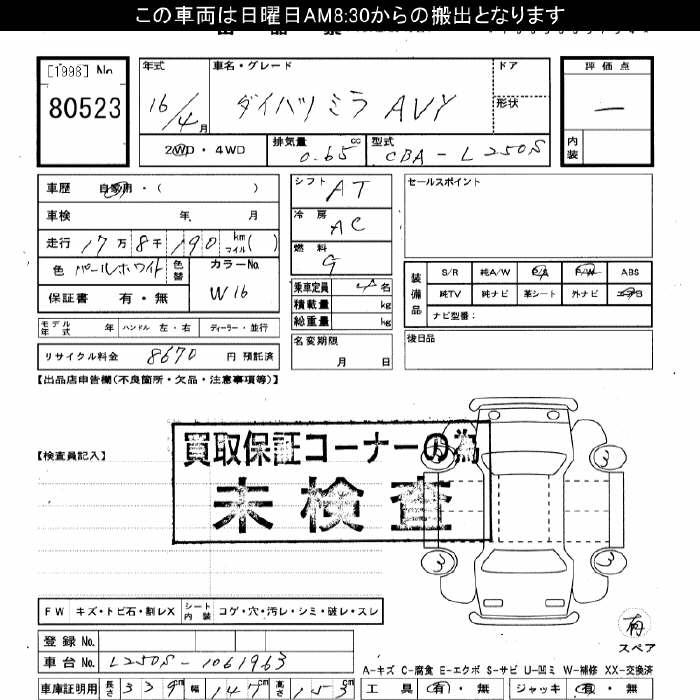 この車両は日曜日AM8:30からの搬出となります
[1998] No
80523
年式 車名・グレード ドア 評価点
16/4月 ダイハツミラ AVY 形状 —
2WD・4WD 排気量 0.65 cc 型式 CBA-L250S 内装
車歴 自家用・( )
シフト AT
セールスポイント
車検 年 月
冷房 AC
走行 17万8千190 km マイル( )
燃料 G
色 パールホワイト 色替 カラーNo. W16
装備品 S/R 純A/W P/S P/W ABS
乗車定員 4名
保証書 有・無
純TV 純ナビ 革シート 外ナビ エアB
積載量 kg
ナビ型番:
モデル年式 年 ハンドル 左・右 ディーラー・並行
総重量 kg
リサイクル料金 8670 円 預託済
名変期限 月 日
後日品
【出品店申告欄(不良箇所・欠品・注意事項等)】
買取保証コーナーの為
【検査員記入】
未検査
3
3
3
3
FW キズ・トビ石・割レX シート内装 コゲ・穴・汚レ・シミ・破レ・スレ
有
スペア
登録 No.
車台 No. L250S-1061963
A-キズ C-腐食 E-エクボ S-サビ U-凹ミ W-補修 XX-交換済
車庫証明用 長さ 339cm 幅 147cm 高さ 153cm
工具 有・無 ジャッキ 有・無